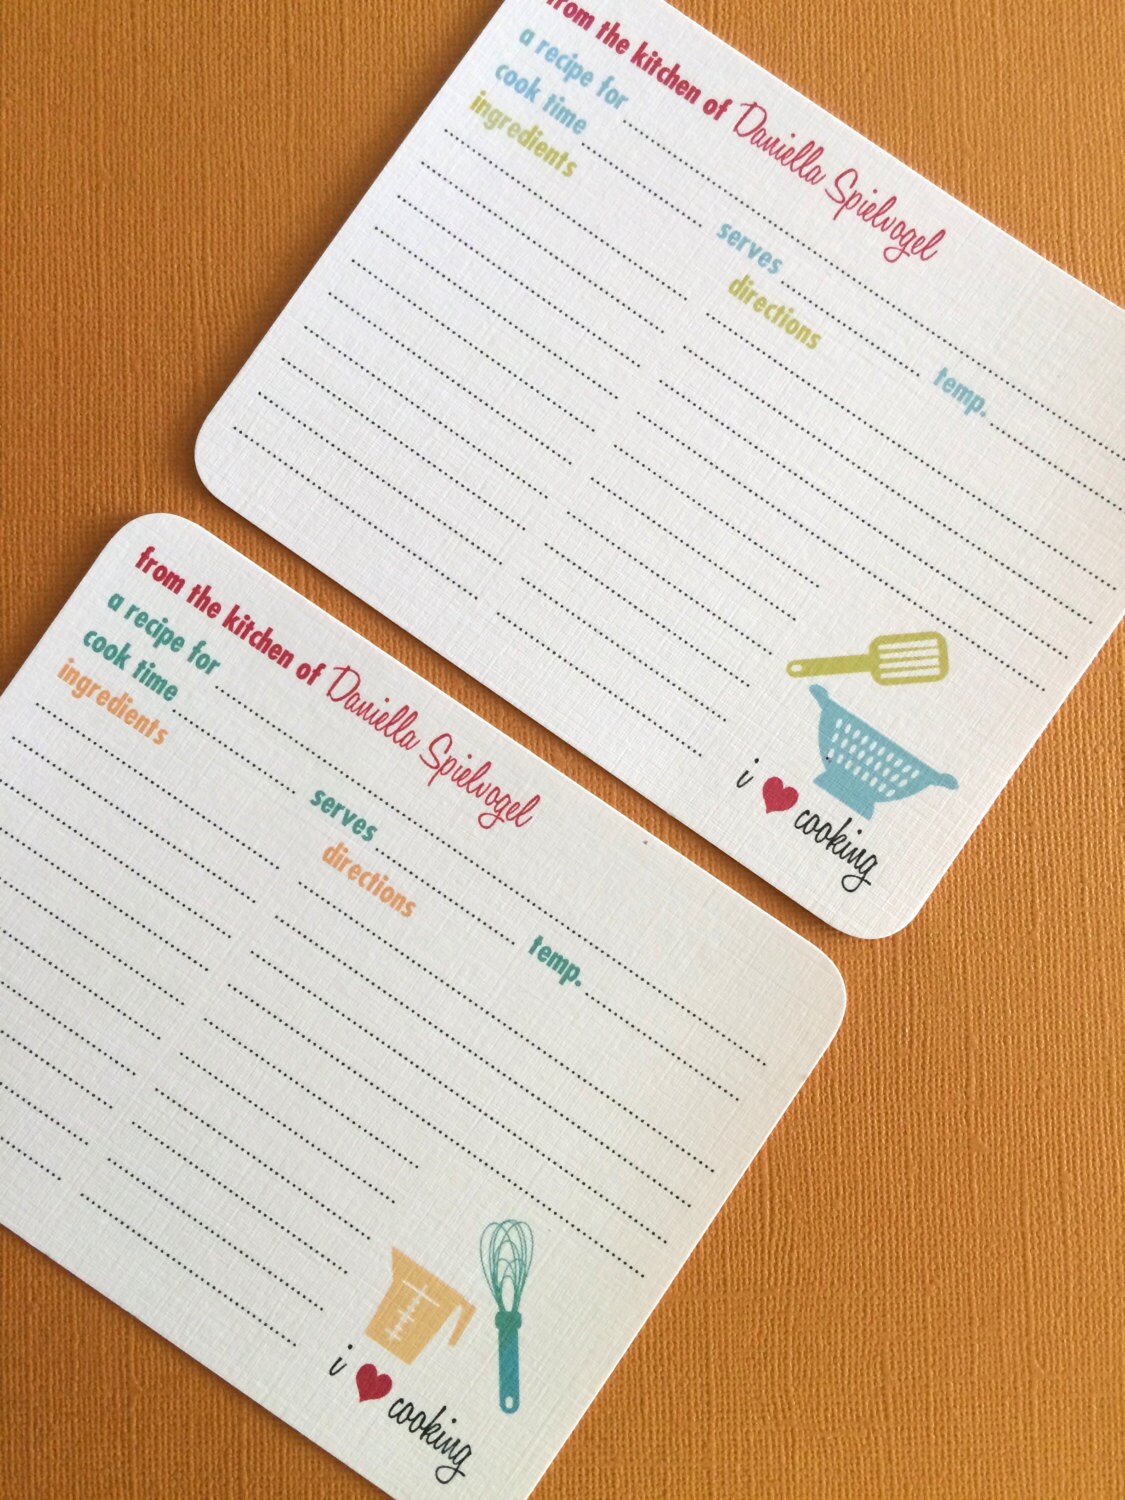 from the kitchen of Daniella Spielvogel
a recipe for
cook time serves temp.
ingredients directions
i ♥ cooking
from the kitchen of Daniella Spielvogel
a recipe for
cook time serves temp.
ingredients directions
i ♥ cooking